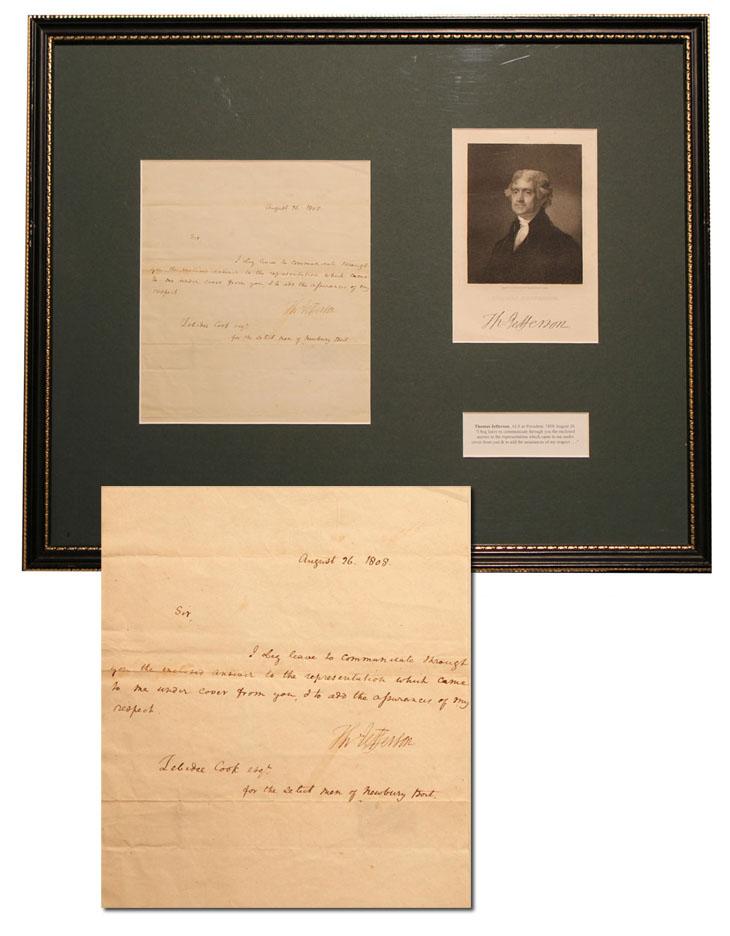 August 26. 1808.
Sir
I beg leave to communicate through
you the enclosed answer to the representation which came
to me under cover from you, & to add the assurances of my
respect
Th Jefferson
Zebidee Cook esqr.
for the select men of Newbury Port.
Th Jefferson
Thomas Jefferson, ALS as President, 1808 August 26
"I beg leave to communicate through you the enclosed
answer to the representation which came to me under
cover from you & to add the assurances of my respect ..."
August 26. 1808.
Sir,
I beg leave to communicate through
you the enclosed answer to the representation which came
to me under cover from you, & to add the assurances of my
respect.
Th Jefferson
Zebidee Cook esqr.
for the select men of Newbury Port.